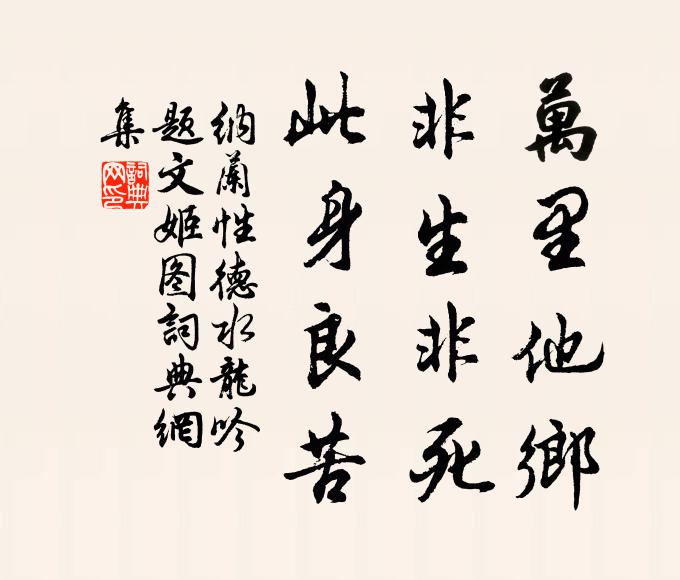 萬里他鄉
非生非死
此身良苦
納蘭性德水龍吟
题文姬图詞典網
集
詞典
网印